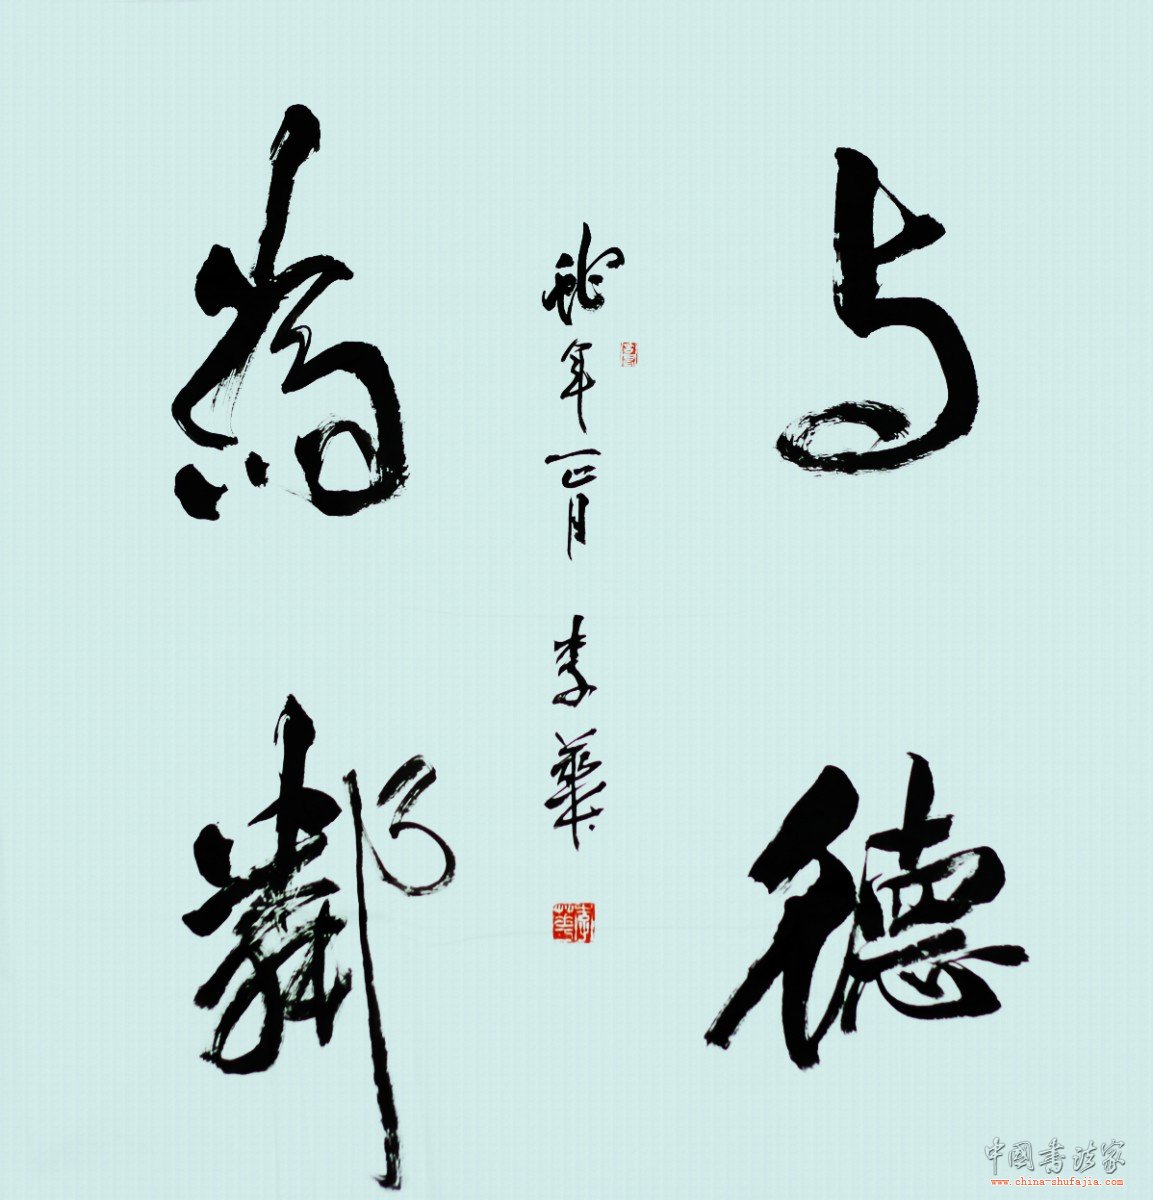 与德
為鄰
蛇年正月 李華
李華
中國書法家
www.china-shufajia.com